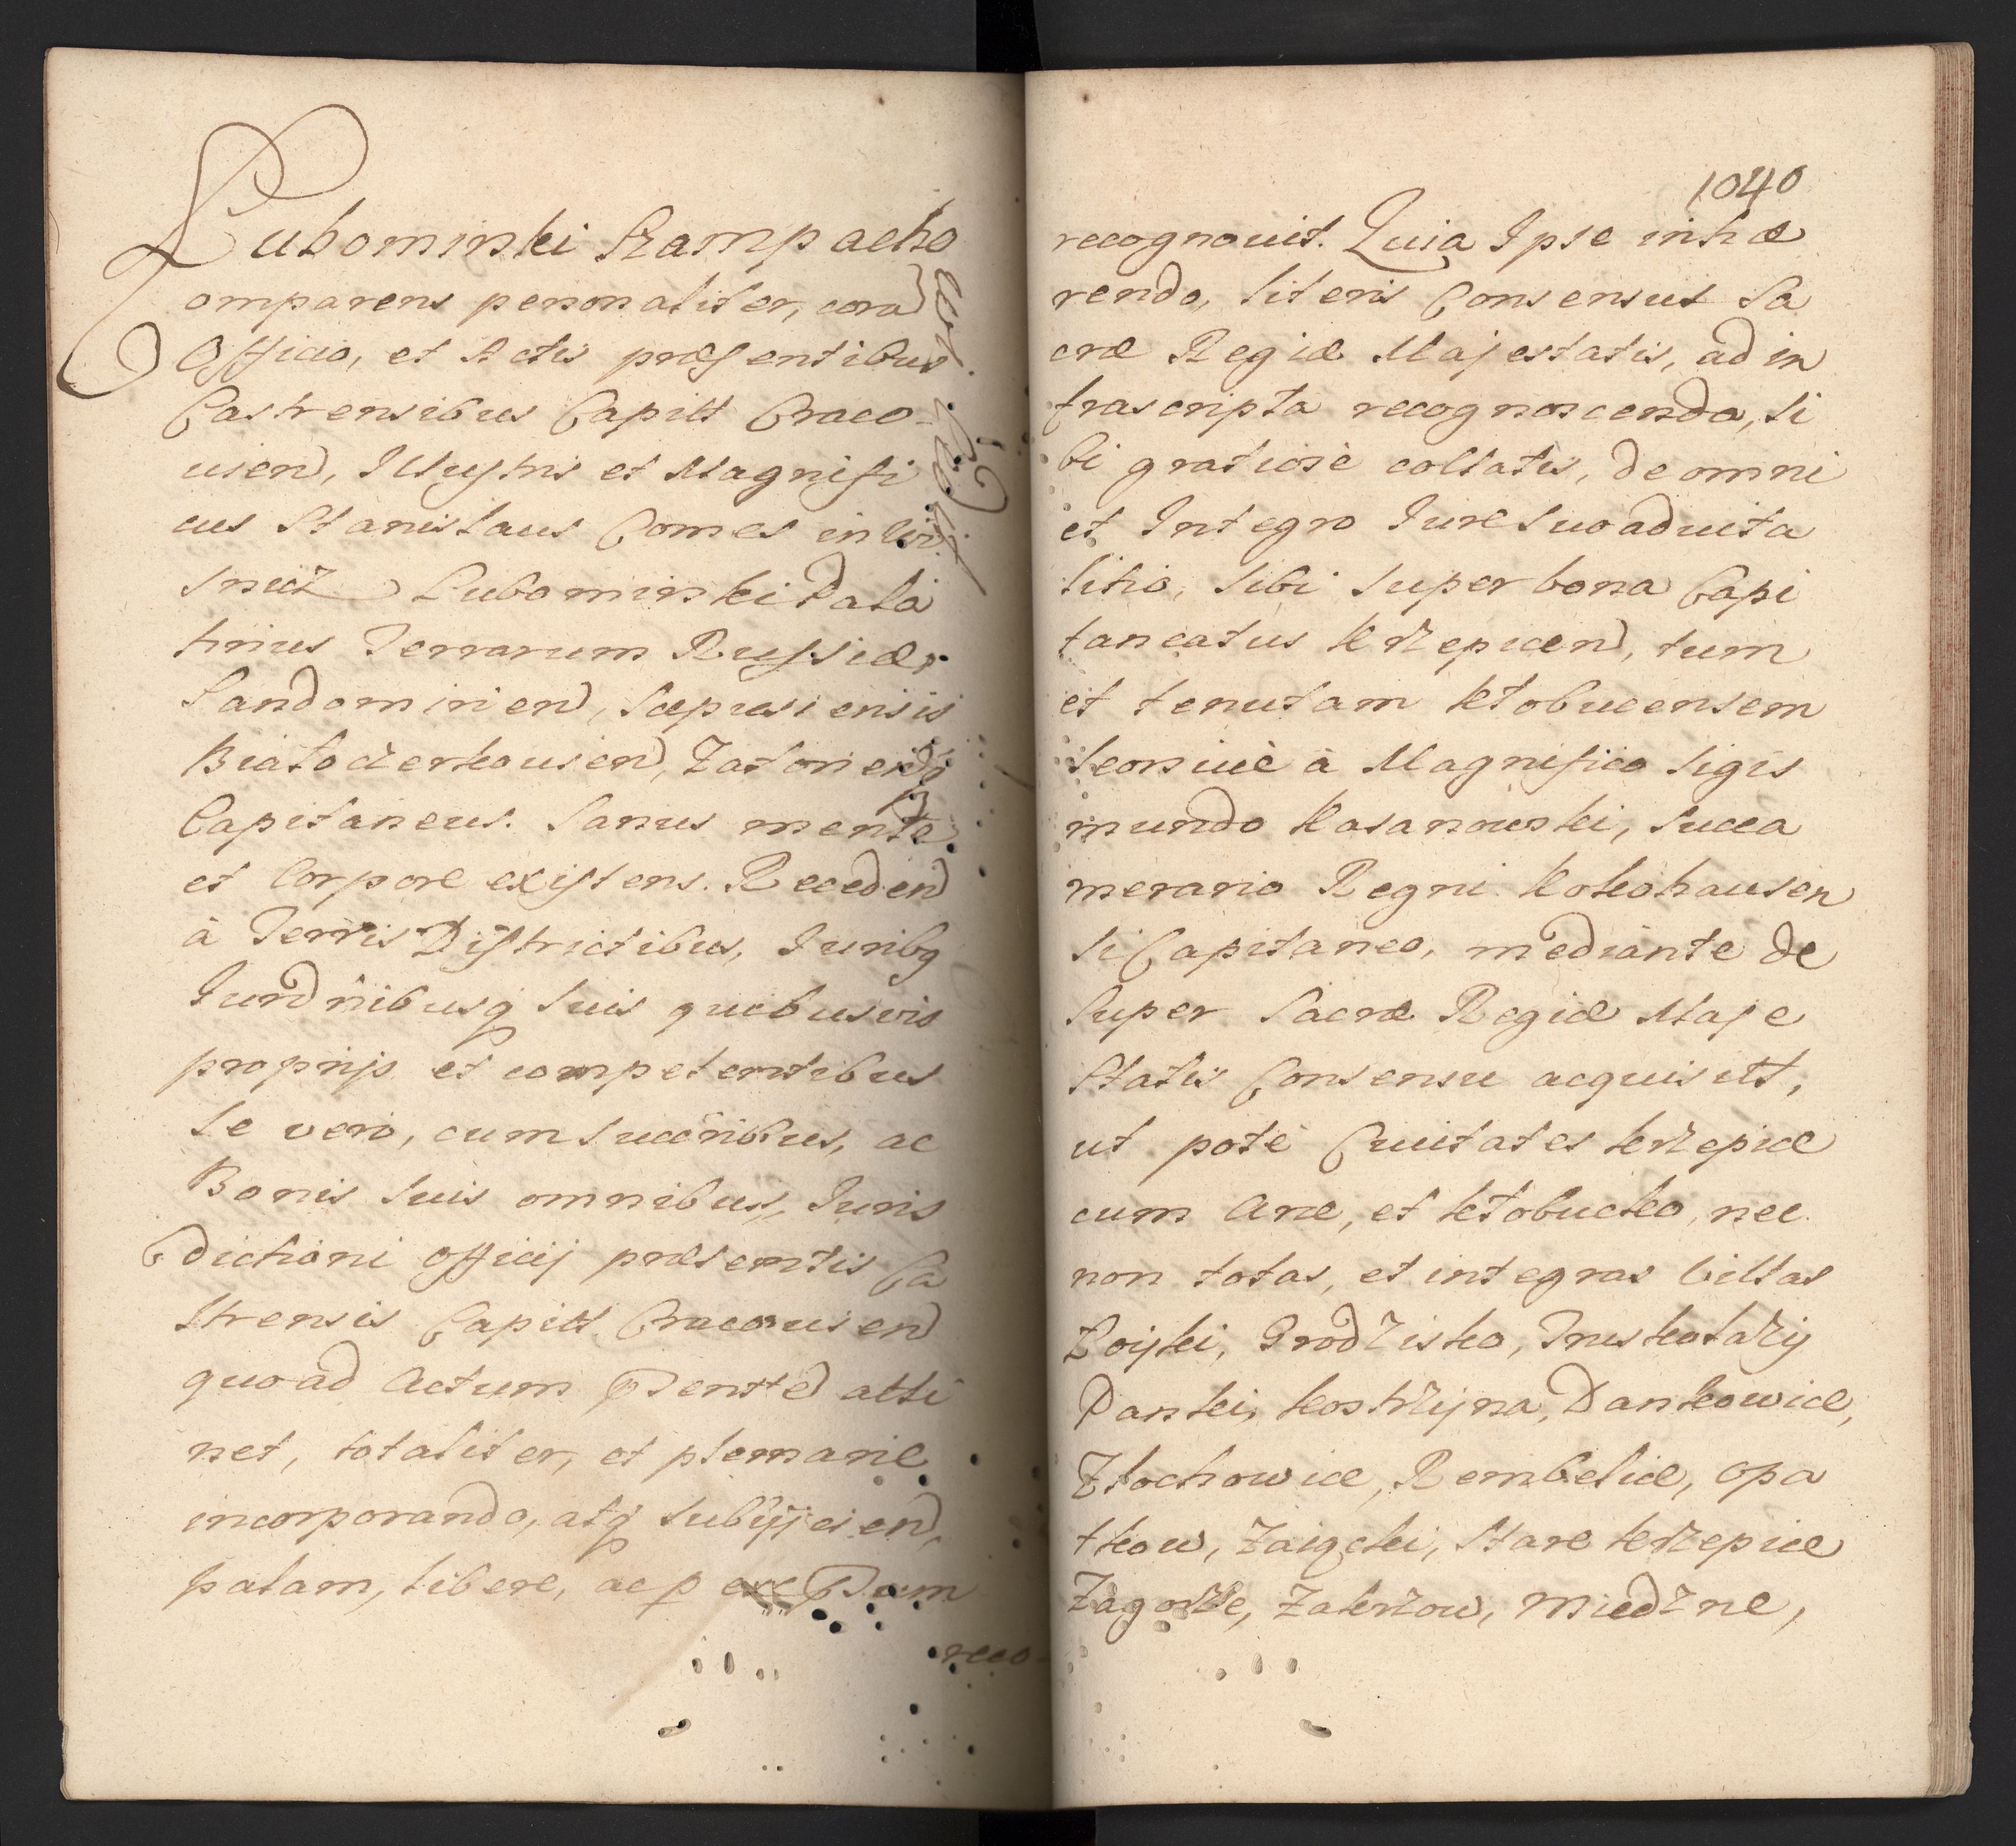 Lubominski Rampacho
Comparens personaliter, cora
Officio, et Actis præsentibus
Castrensibus Capitt Craco-
uien, Illustris et Magnifi
cus Stanislaus Comes in Wi
snicz Lubominski Pala
tinus Terrarum Russiæ,
Sandomirien, Scepusiensis
Białocerkouien, Zatorienq
Capitaneus. Sanus mente
et Corpore existens. Receden
à Terris Districtibus, Juribq
Jurdnibusq suis quibusvis
proprijs et competentibus
se vero, cum succribus, ac
Bonis suis omnibus, Juris
dictioni officij præsentis Ca
strensis Capitt Cracouien
quoad Actum Pente atti
net, totaliter, et plenarie
incorporando, atq subijcien,
palam, libere, ac p exePsum
reco-
1040
recognouit. Quia Ipse inhæ
rendo, literis Consensus Sa
cræ Regiæ Majestatis, ad in
frascripta recognoscenda, si
bi gratiose collatis, de omni
et Integro Jure suo aduita
litio, sibi super bona Capi
taneatus Krzepicen, tum
et tenutam Kłobucensem
seorsiuè à Magnifico Sigis
mundo Kasanowski, Succa
merario Regni Kokohausen
si Capitaneo, mediante de
super Sacræ Regiæ Maje
statis Consensu acquisitt,
ut potè Ciuitates Krzepice
cum Arce, et Kłobucko, nec
non totas, et integras Villas
Zoijski, Grodzisko, Truskolazij
Panki, Kostrzijna, Dankowice,
Złochowice, Rembelice, Opa
tkow, Zaigcki, Stare Krzepice
Zagorze, Zakrzow, Miedzne,